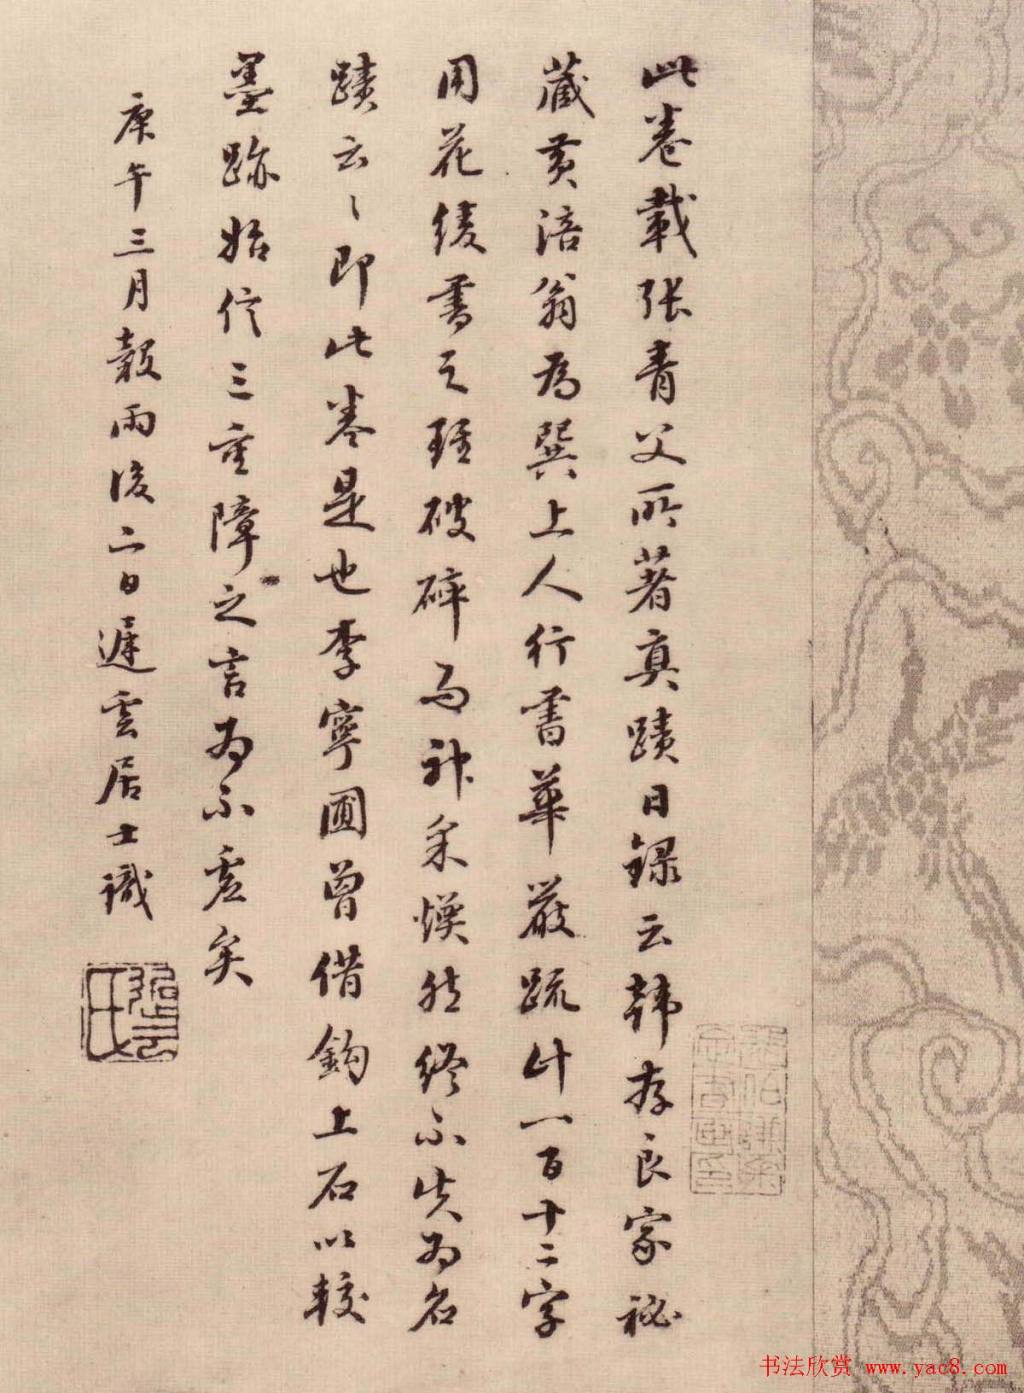 此卷載张青父所著真蹟日録云韩存良家祕
藏黄涪翁為巽上人行書華嚴疏计一百十二字
用花绫書之虽破碎而神采焕然终不失为名
蹟云〻即此卷是也李寧圃曾借鈎上石以較
墨跡始信三重障之言为不虚矣
庚午三月穀雨後二日遲雲居士識
书法欣赏 www.yac8.com